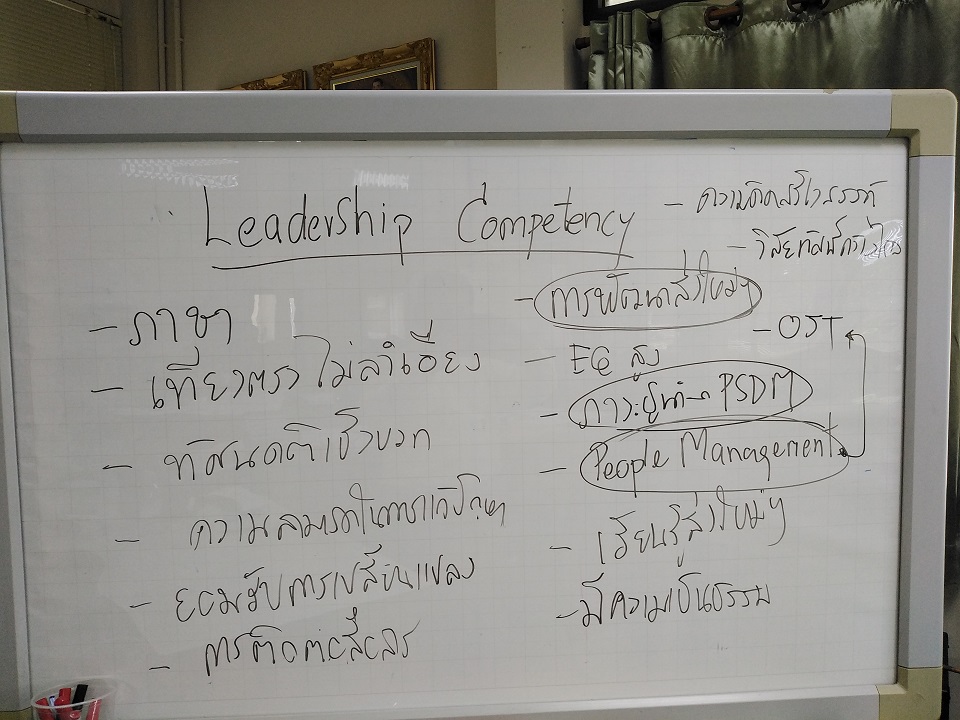 Leadership Competency
- ภาษา
- เที่ยงตรง ไม่ลำเอียง
- ทัศนคติเชิงบวก
- ความสามารถในการแก้ปัญหา
- ยอมรับการเปลี่ยนแปลง
- การติดต่อสื่อสาร
- ความคิดสร้างสรรค์
- วิสัยทัศน์กว้างไกล
- การพัฒนาสิ่งใหม่ๆ
- OJT
- EQ สูง
- ภาวะผู้นำ PSDM
- People Management
- เรียนรู้สิ่งใหม่ๆ
- มีความเป็นธรรม